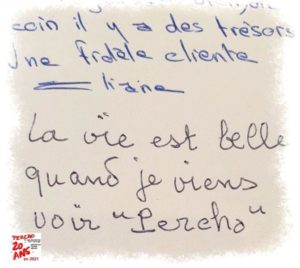 coin il y a des trésors
Une fidèle cliente
liane
La vïe est belle
quand je viens
voïr "Percho"
20
ANS
en 2021